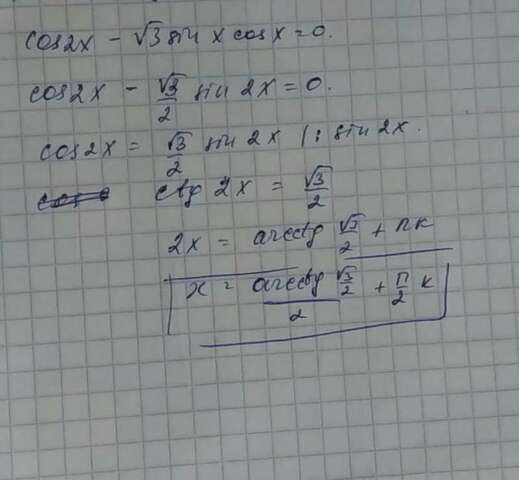 cos2x - √3 sin x cos x = 0.
cos2x - √3/2 sin 2x = 0.
cos2x = √3/2 sin 2x /: sin 2x.
ctg 2x = √3/2
2x = arcctg √3/2 + πk
x = (arcctg √3/2)/2 + π/2 k